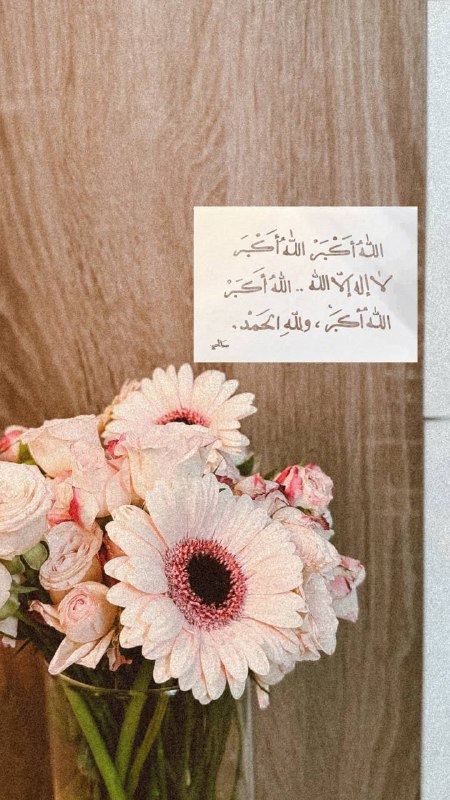 اللهُ أَكْبَرْ اللهُ أَكْبَرَ
لا إله إلّا الله .. اللهُ أَكَبَرْ
اللهُ أَكبَرْ ، وللهِ الحَمَدْ .